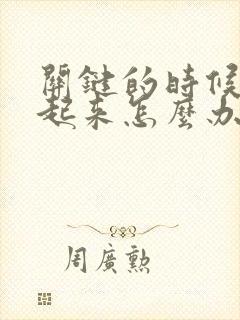 關鍵的時候
起來怎麼办
周廣勳